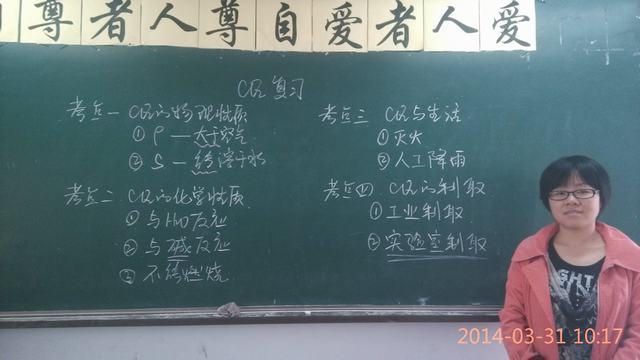 自尊者人尊自爱者人爱
CO₂复习
考点一 CO₂的物理性质
① ρ — 大于空气
② S — 能溶于水
考点二 CO₂的化学性质
① 与H₂O反应
② 与碱反应
③ 不能燃烧
考点三 CO₂与生活
① 灭火
② 人工降雨
考点四 CO₂的制取
① 工业制取
② 实验室制取
2014-03-31 10:17